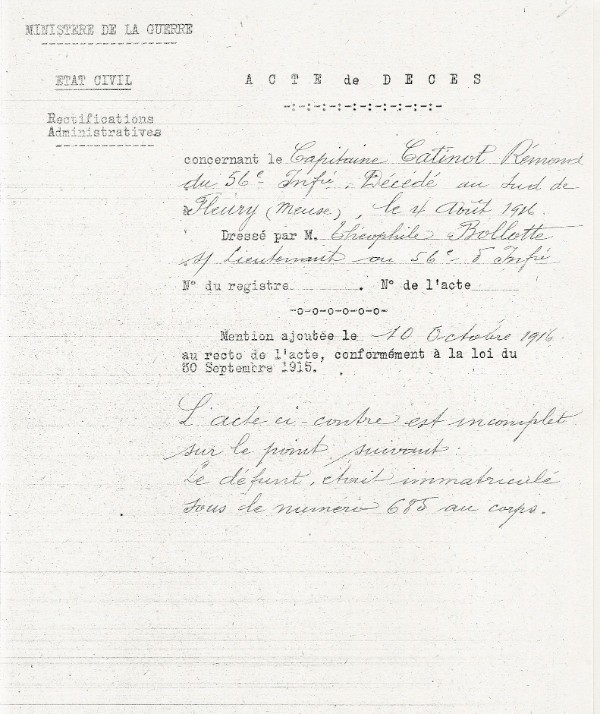 MINISTERE DE LA GUERRE
ETAT CIVIL
Rectifications
Administratives
ACTE de DECES
concernant le Capitaine Catinot Rémond
du 56e Infie. Décédé au sud de
Fleury (Meuse), le 4 Août 1916.
Dressé par M. Théophile Bollotte
s/ Lieutenant au 56e d' Infie
N° du registre . N° de l'acte
Mention ajoutée le 10 Octobre 1916
au recto de l'acte, conformément à la loi du
30 Septembre 1915.
L'acte ci-contre est incomplet
sur le point suivant:
Le défunt, était immatriculé
sous le numero 685 au corps.